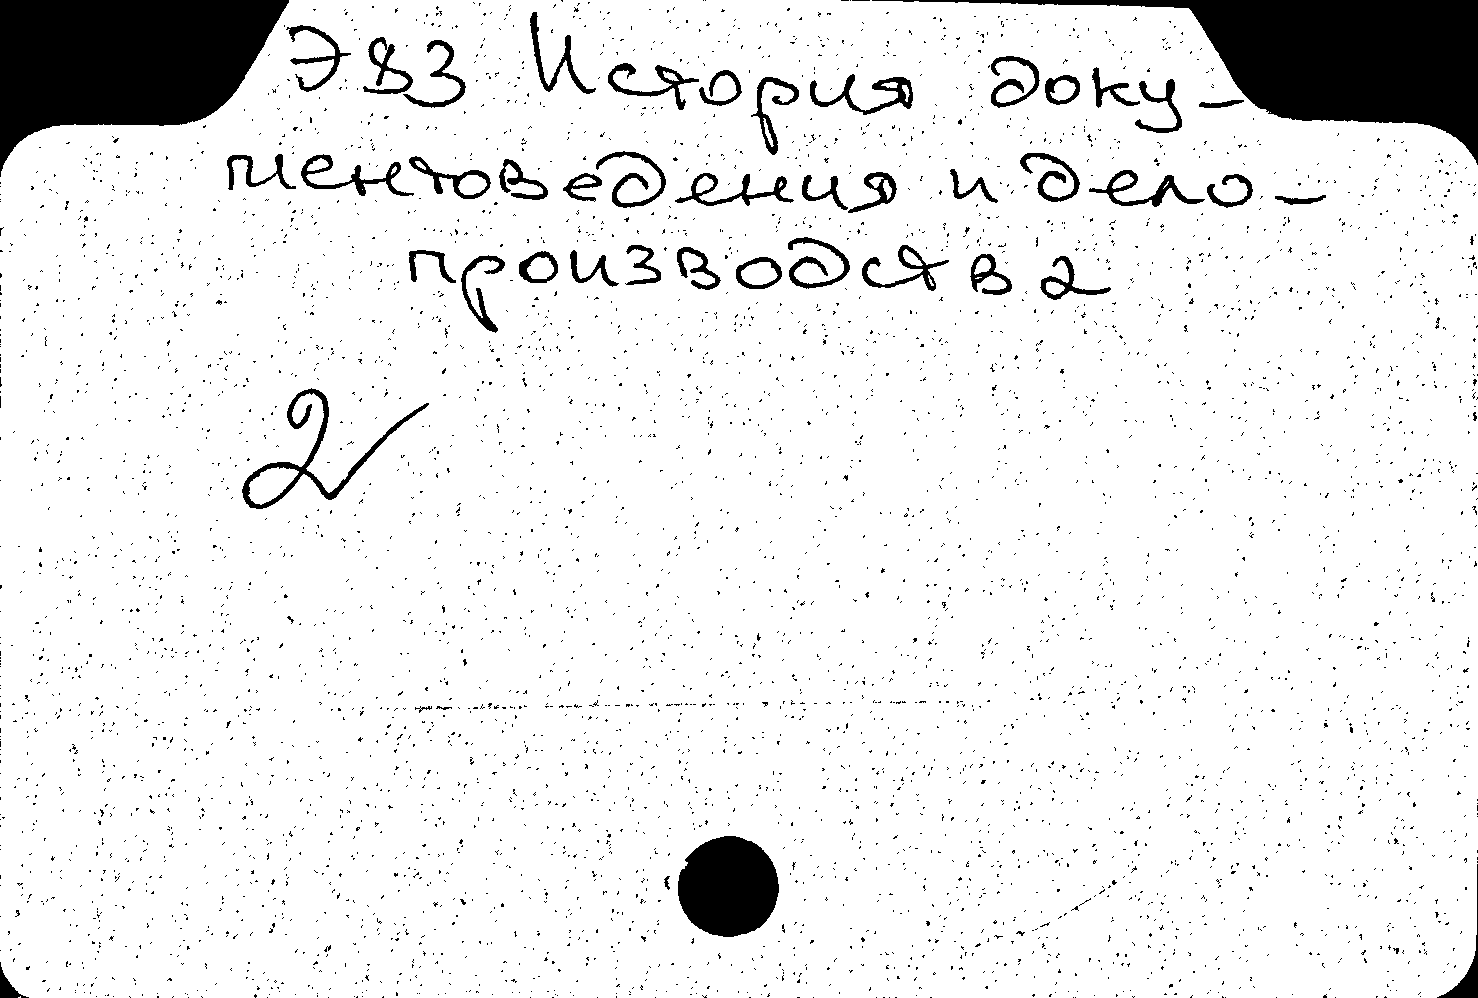 Э83 История доку-
ментоведения и дело-
производства
2✓